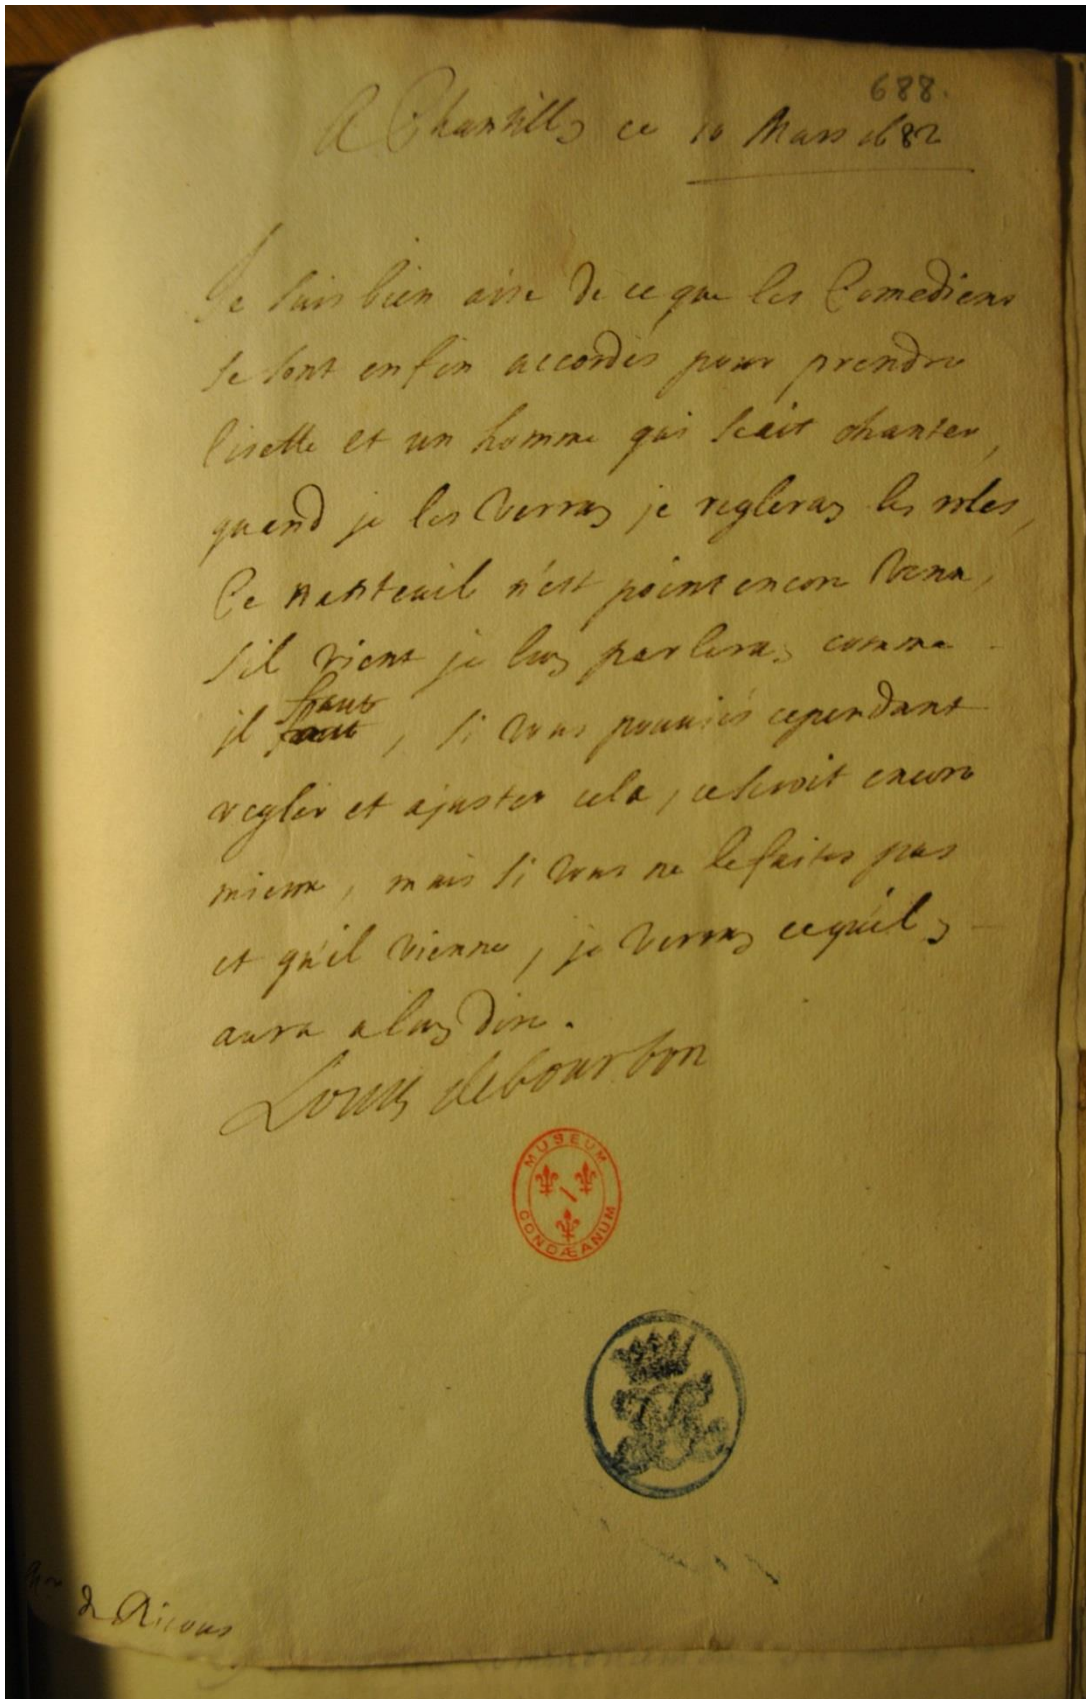 688.
A Chantilly ce 10 Mars 1682
Je suis bien aise de ce que les Comediens
se sont enfin accordés pour prendre
Lisette et un homme qui scait chanter,
quand je les verray je regleray les roles,
Ce nanteuil n'est point encore venu,
s'il vient je luy parleray comme
il faut faut, si vous pouuiés cependant
regler et ajuster cela, ce seroit encore
mieux, mais si vous ne le faites pas
et qu'il vienne, je verray ce qu'il y
aura a luy dire.
Louis de bourbon
MUSEUM
CONDÆANUM
de Ricous